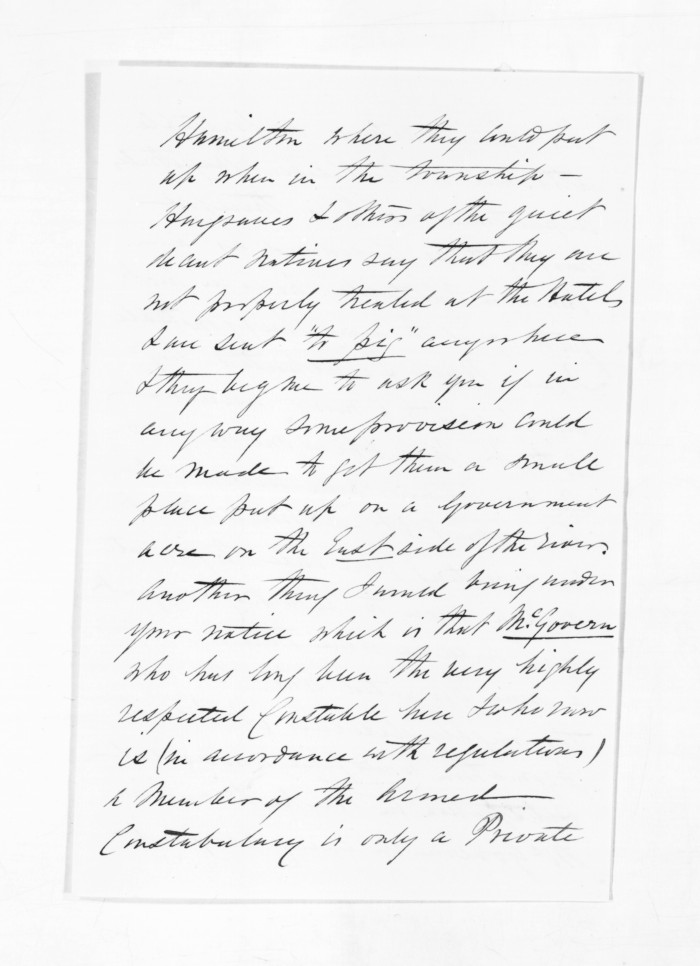 Hamilton where they could put
up when in the township –
Hargraves & others of the quiet
decent natives say that they are
not properly treated at the Hotels
& are sent "to pig" anywhere
& they beg me to ask you if in
any way some provision could
be made to get them a small
place put up on a Government
acre on the East side of the river.
Another thing I would bring under
your notice which is that McGovern
who has long been the very highly
respected Constable here & who now
is (in accordance with regulations)
a Member of the Armed
Constabulary is only a Private